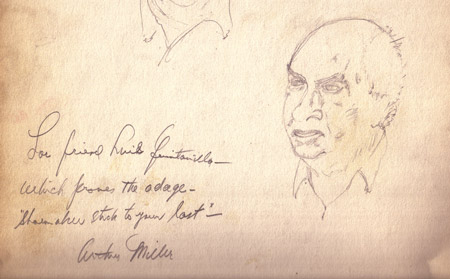 For friend Luis Quintanilla —
which proves the adage —
"Shoemaker stick to your last" —
Arthur Miller